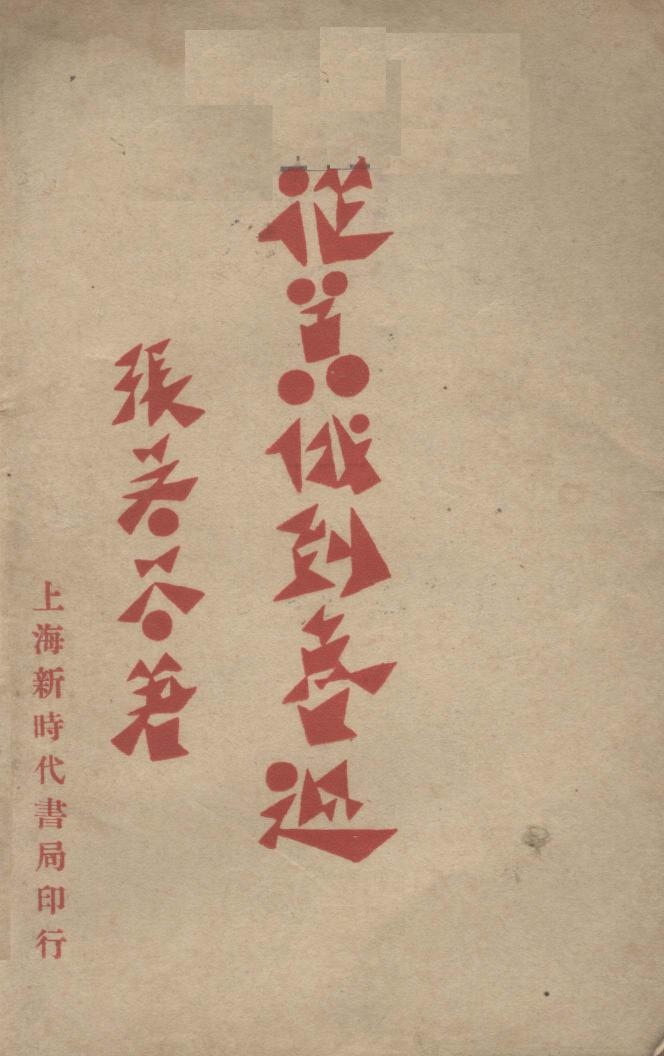 從囂俄到魯迅
張若谷著
上海新時代書局印行